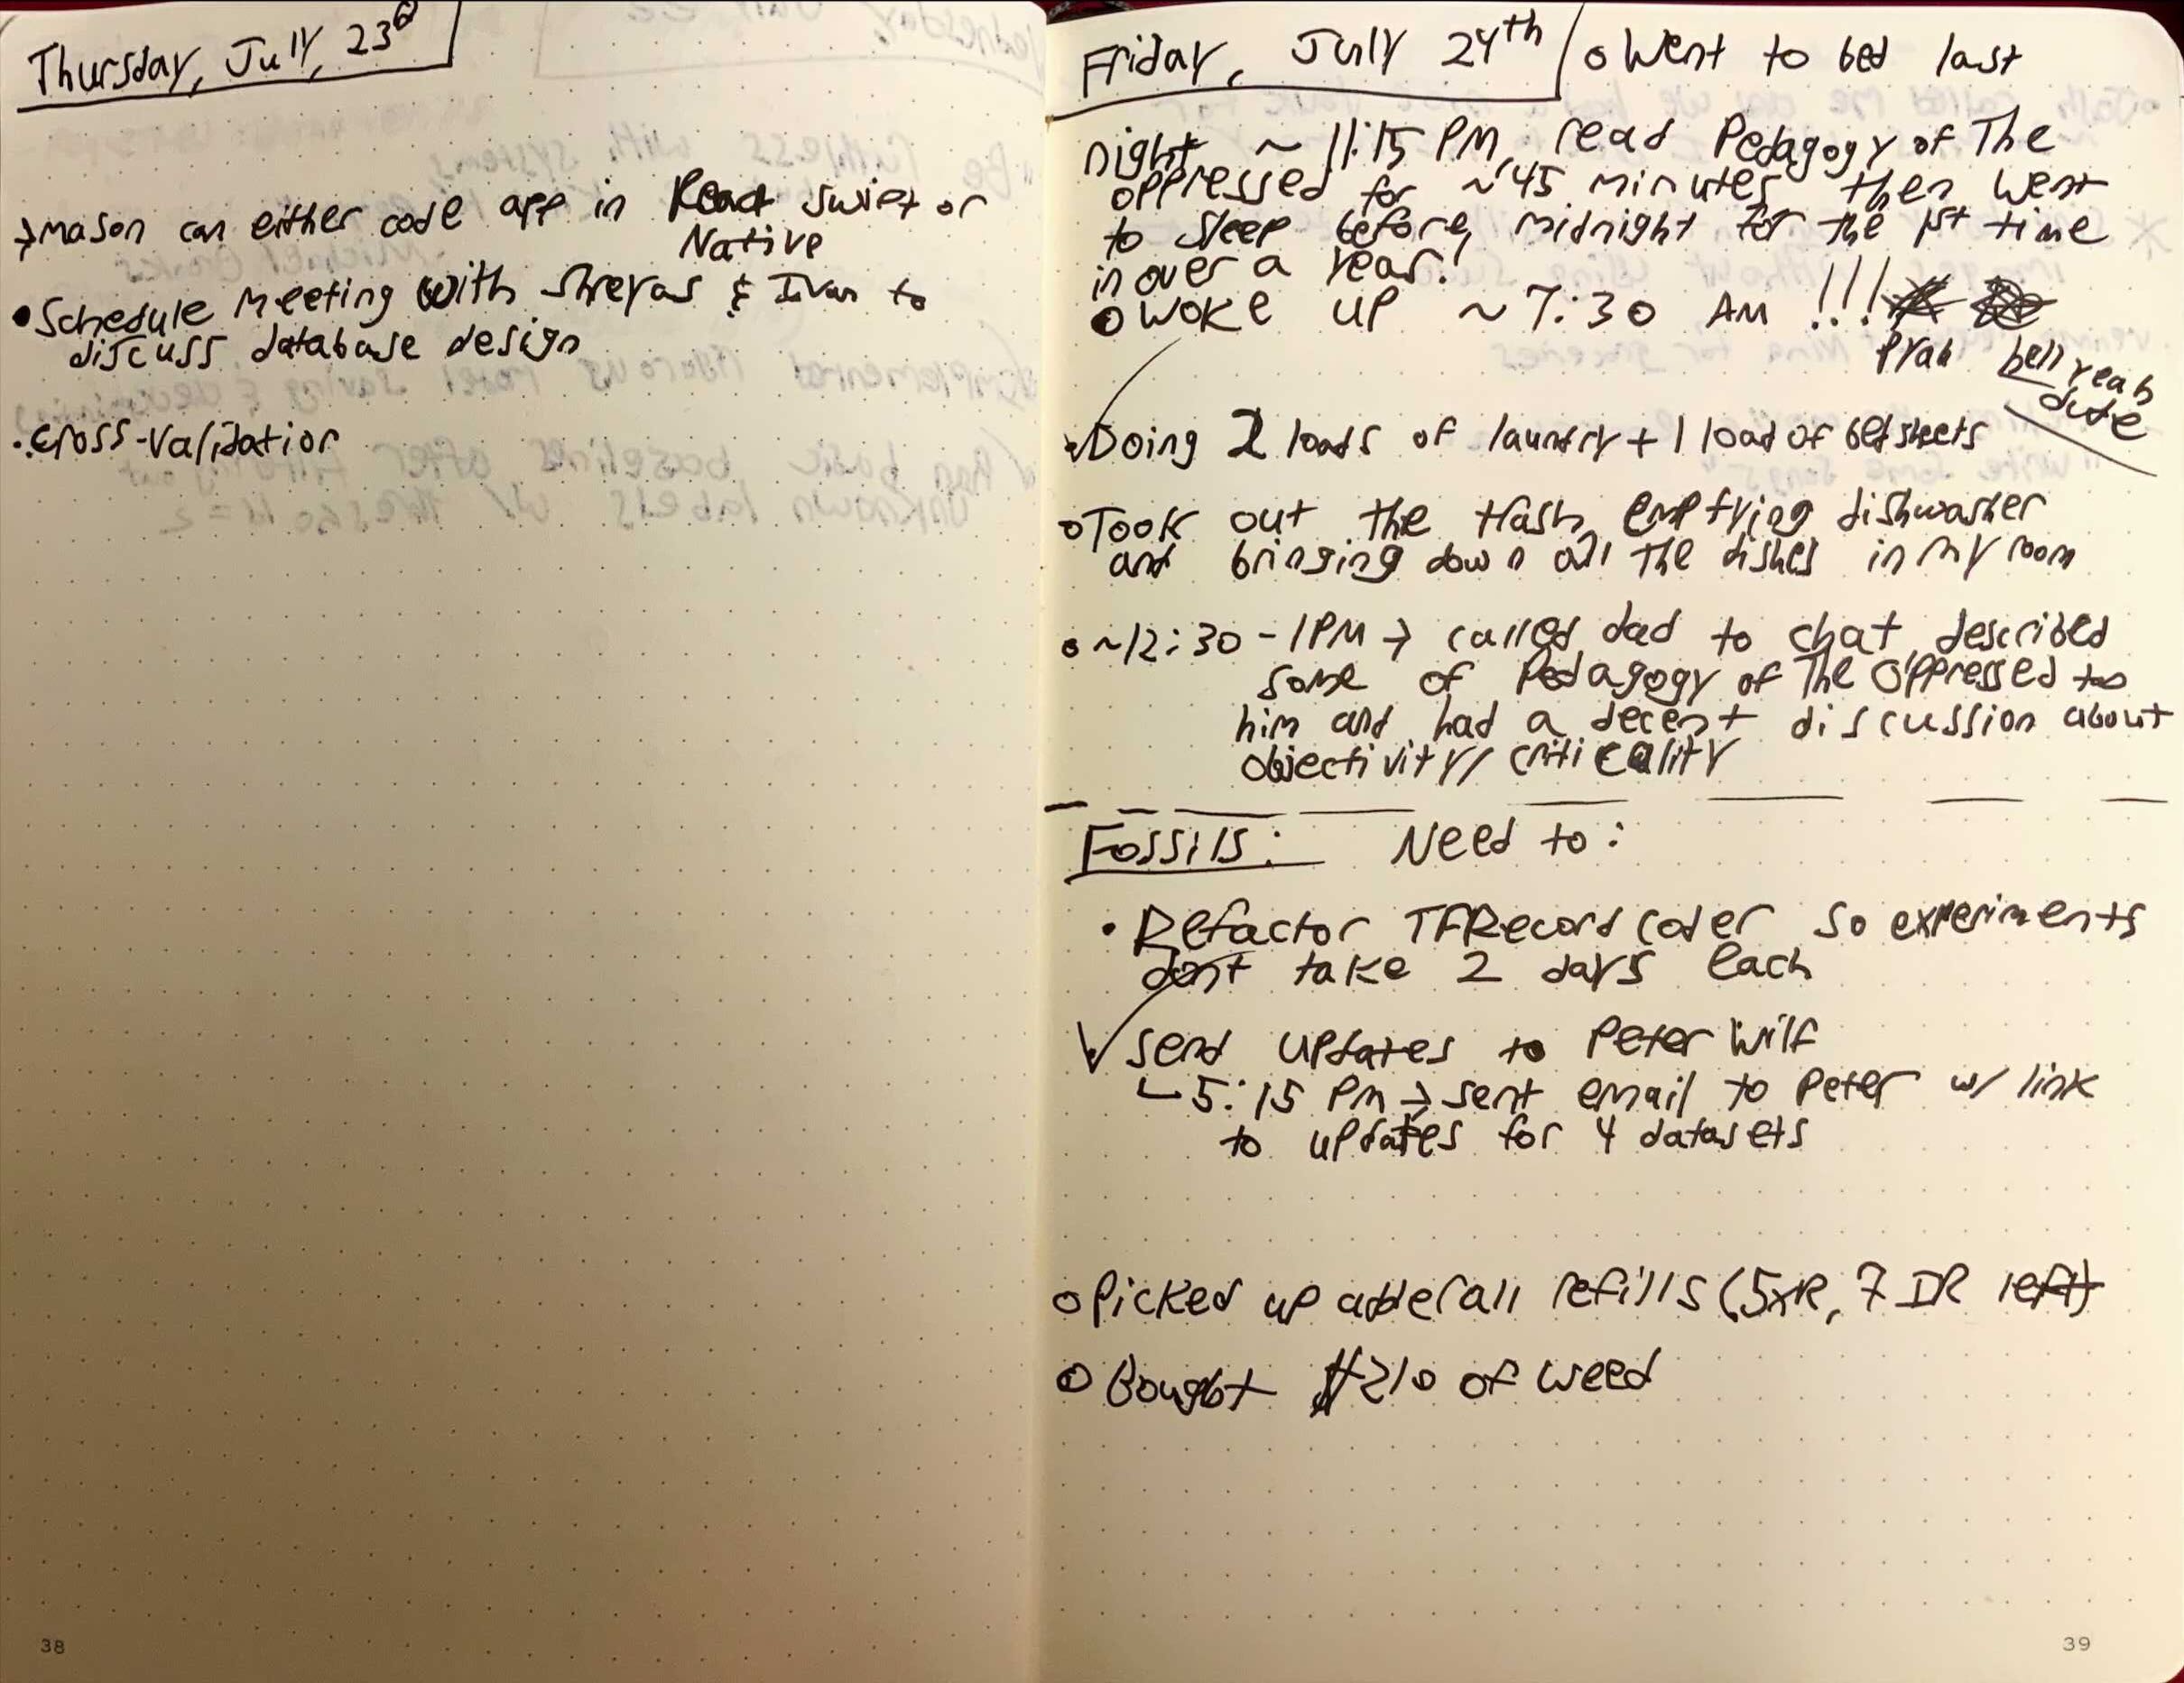 Thursday, July, 23
→Mason can either code app in React Swift or
Native
•Schedule Meeting with Shreyas & Ivan to
discuss database design
•Cross-Validation
38
Friday, July 24th
o Went to bed last
night ~ 11:15 PM, read Pedagogy of The
oppressed for ~45 minutes, then went
to sleep before midnight for the 1st time
in over a year!
o Woke up ~7:30 AM !!!
Yeah hell yeah
dude
✓Doing 2 loads of laundry + 1 load of bedsheets
o Took out the trash, emptying dishwasher
and bringing down all the dishes in my room
o ~12:30 - 1PM → called dad to chat, described
some of Pedagogy of The Oppressed to
him and had a decent discussion about
objectivity/criticality
Fossils: Need to:
• Refactor TFRecordCoder so experiments
dont take 2 days each
✓ Send updates to Peter Wilf
↳ 5:15 PM → sent email to Peter w/ link
to updates for 4 datasets
o Picked up adderall refills (5XR, 7 IR left)
o Bought $210 of weed
39